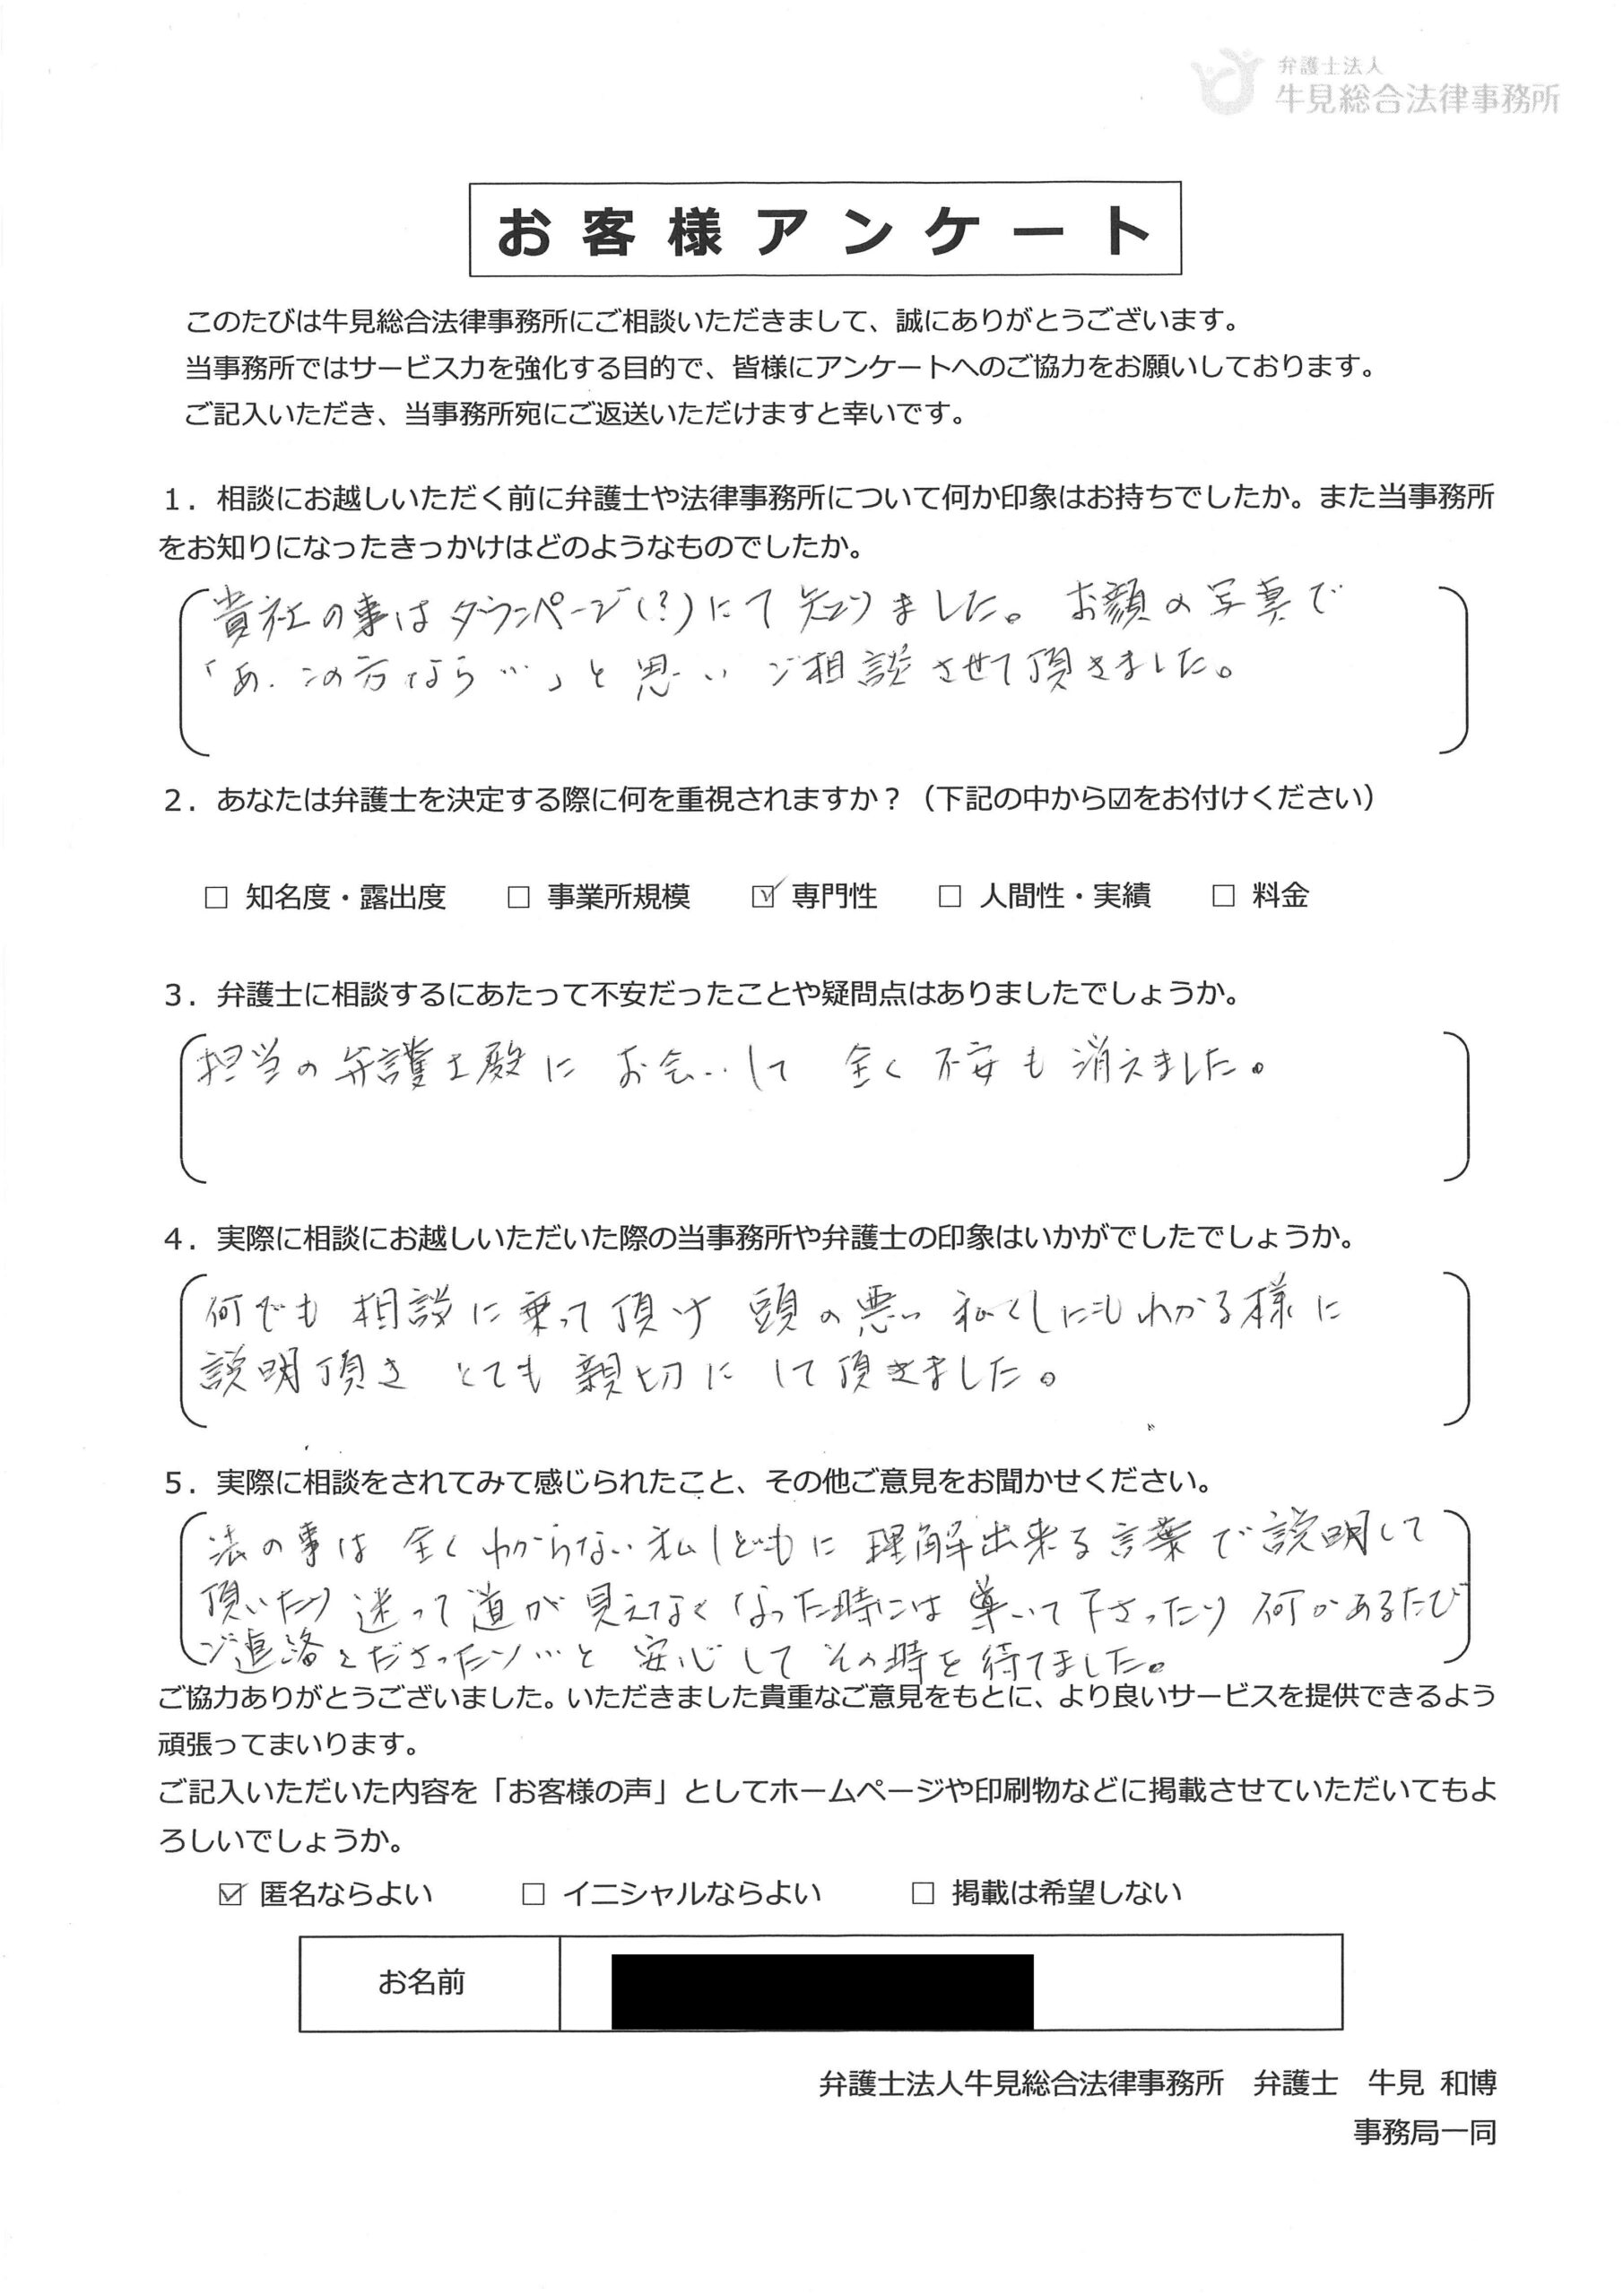 弁護士法人
牛見総合法律事務所
お客様アンケート
このたびは牛見総合法律事務所にご相談いただきまして、誠にありがとうございます。
当事務所ではサービス力を強化する目的で、皆様にアンケートへのご協力をお願いしております。
ご記入いただき、当事務所宛にご返送いただけますと幸いです。
1．相談にお越しいただく前に弁護士や法律事務所について何か印象はお持ちでしたか。また当事務所
をお知りになったきっかけはどのようなものでしたか。
貴社の事はタウンページ(?)にて知りました。お顔の写真で
「あ、この方なら…」と思い ご相談させて頂きました。
2．あなたは弁護士を決定する際に何を重視されますか？（下記の中から☑をお付けください）
□ 知名度・露出度 □ 事業所規模 ☑ 専門性 □ 人間性・実績 □ 料金
3．弁護士に相談するにあたって不安だったことや疑問点はありましたでしょうか。
担当の弁護士殿に お会いして 全く不安も消えました。
4．実際に相談にお越しいただいた際の当事務所や弁護士の印象はいかがでしたでしょうか。
何でも相談に乗って頂け 頭の悪い私くしにもわかる様に
説明頂き とても親切にして頂きました。
5．実際に相談をされてみて感じられたこと、その他ご意見をお聞かせください。
法の事は全くわからない私しどもに理解出来る言葉で説明して
頂いたり迷って道が見えなくなった時には導いて下さったり何かあるたび
ご連絡くださったり…と 安心してその時を待てました。
ご協力ありがとうございました。いただきました貴重なご意見をもとに、より良いサービスを提供できるよう
頑張ってまいります。
ご記入いただいた内容を「お客様の声」としてホームページや印刷物などに掲載させていただいてもよ
ろしいでしょうか。
☑ 匿名ならよい □ イニシャルならよい □ 掲載は希望しない
お名前
弁護士法人牛見総合法律事務所 弁護士 牛見 和博
事務局一同